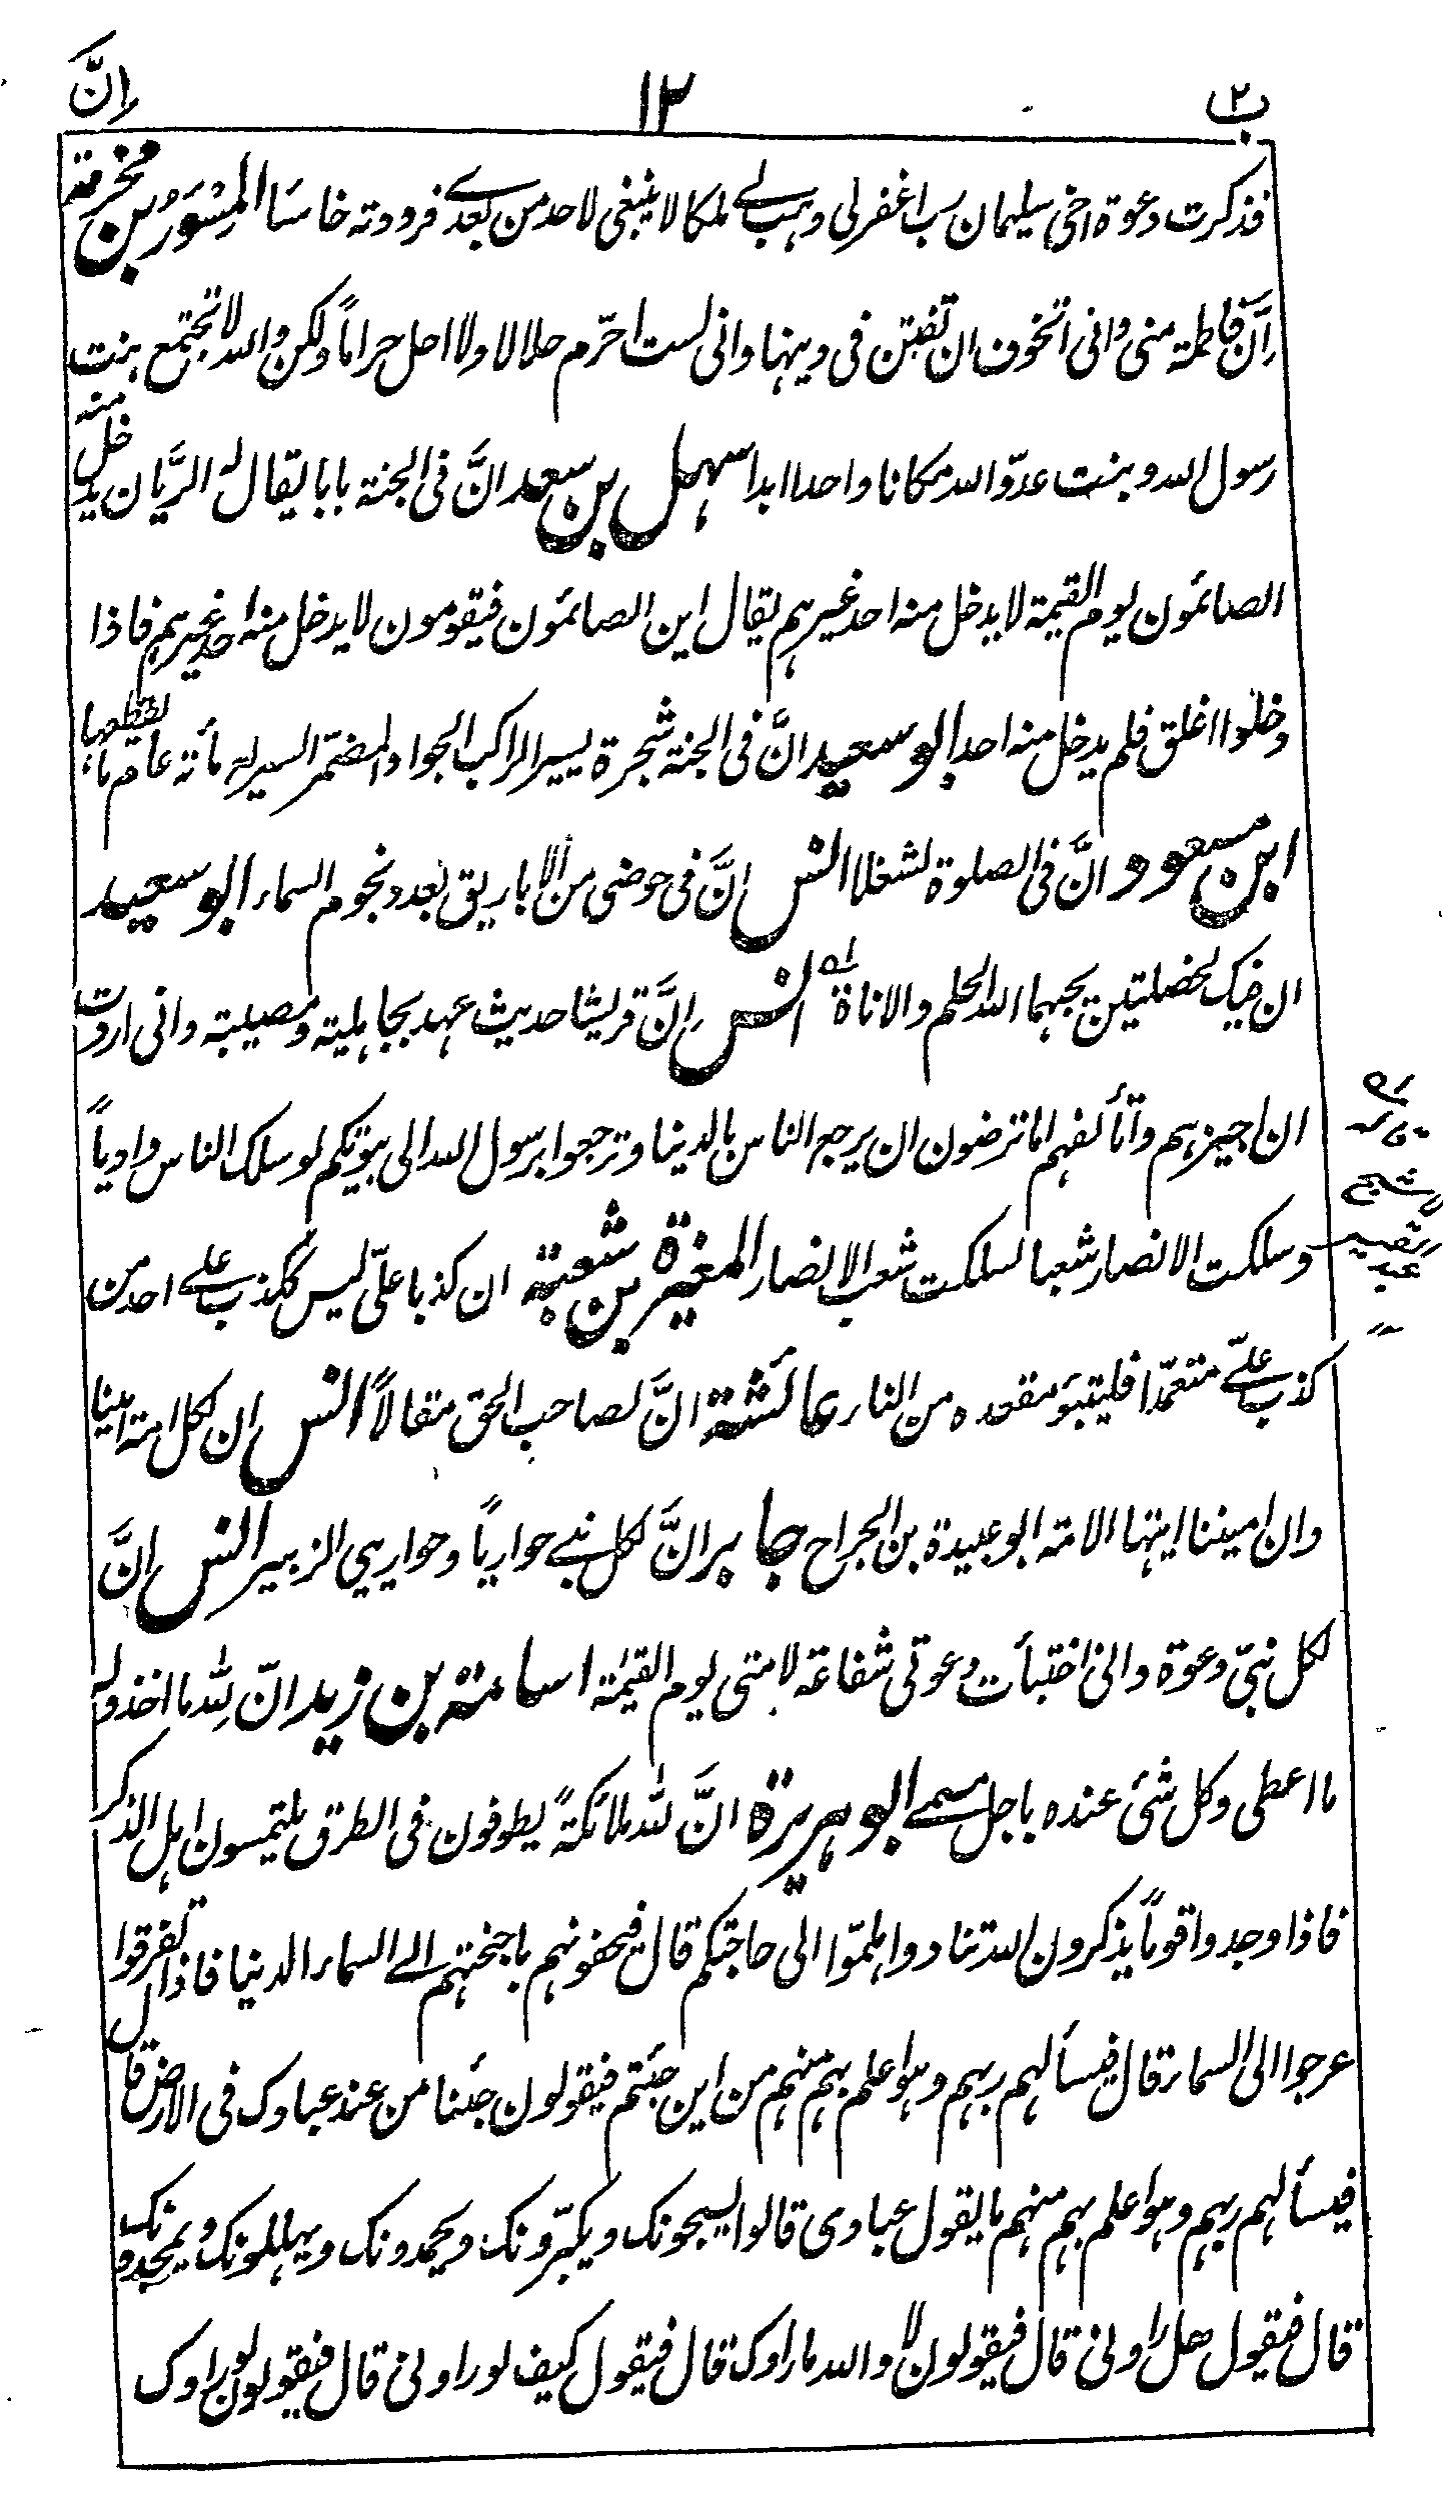 ب ٢
١٢
اِنَّ
فذكرت دعوة اخى سليمان رب اغفر لى وهب لے ملكا لا ينبغى لاحد من بعدے فرددته خاسًا المِسْوَرُ بن مخرمة
اِنَّ فاطمة منى وانى اتخوف ان تفتن فى دينها وانى لست احرّم حلالا ولا احل حراماً ولكن والله لا تجتمع بنت
رسول الله وبنت عدوّ الله مكانا واحدا ابدا سهل بن سعد انَّ فى الجنة بابا يقال له الريَّان يدخل منه
الصائمون يوم القيمة لا يدخل منه احد غيرهم يقال اين الصائمون فيقومون لا يدخل منه احد غيرهم فاذا
دخلوا اغلق فلم يدخل منه احد ابو سعيد انَّ فى الجنة شجرة يسير الراكب الجواد المضمّر السير له مأئة عام ما يقطعها
ابن مسعود انَّ فى الصلوة لشغلا انس انَّ فى حوضى من الاباريق بعدد نجوم السماء ابو سعيد
ان فيك لخصلتين يحبهما الله الحلم والاناة انس اِنَّ قريشا حديث عهد بجاهلية ومصيبة وانى اردت
ان اجيزهم واتألفهم اما ترضون ان يرجع الناس بالدنيا وترجعوا برسول الله الى بيوتكم لو سلك الناس وادياً
وسلكت الانصار شعبا لسلكت شعب الانصار المغيرة بن شعبة ان كذبا علىّ ليس ككذب علے احد من
كذب علےّ متعمّدا فليتبوّء مقعده من النار عائشة انَّ لصاحب الحق مقالاً انس ان لكل امة امينا
وان اميننا ايتها الامة ابو عبيدة بن الجراح جابر انَّ لكل نبے حوارياً وحواريى الزبير انس انَّ
لكل نبىّ دعوة وانى اختبأت دعوتى شفاعة لامتى يوم القيمة اسامة بن زيد انّ لِلّه ما اخذ وله
ما اعطى وكل شئ عنده باجل مسمے ابو هريرة انَّ لله ملائكةً يطوفون فى الطرق يلتمسون اهل الذكر
فاذا وجدوا قوماً يذكرون الله تنادوا هلمّوا الى حاجتكم قال فيحفونهم باجنحتهم الے السماء الدنيا فاذا تفرقوا
عرجوا الى السماء قال فيسألهم ربهم وهو اعلم بهم منهم من اين جئتم فيقولون جئنا من عند عبادك فى الارض قال
فيسألهم ربهم وهو اعلم بهم منهم ما يقول عبادى قالوا يسبحونك ويكبّرونك ويحمدونك ويهللونك ويمجدونك
قال فيقول هل راونى قال فيقولون لا والله ما راوك قال فيقول كيف لو راونى قال فيقولون لو راوك